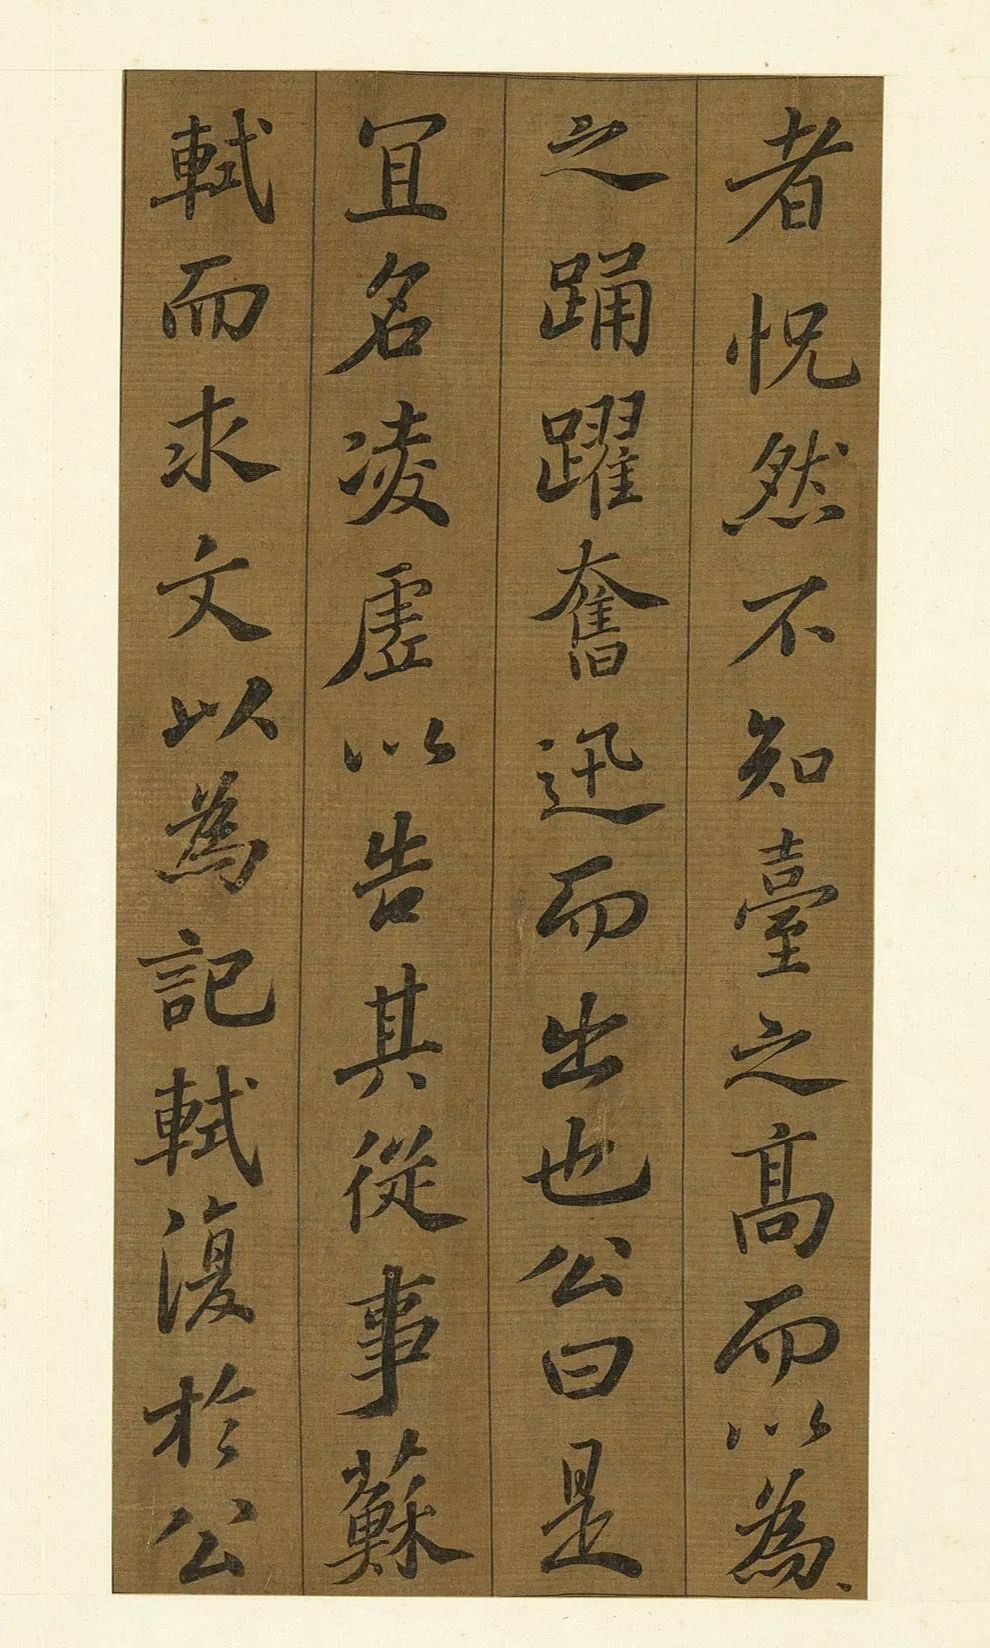 者怳然不知臺之髙而以為
之踊躍奮迅而出也公曰是
冝名凌虗以告其從事蘇
軾而求文以為記軾復於公